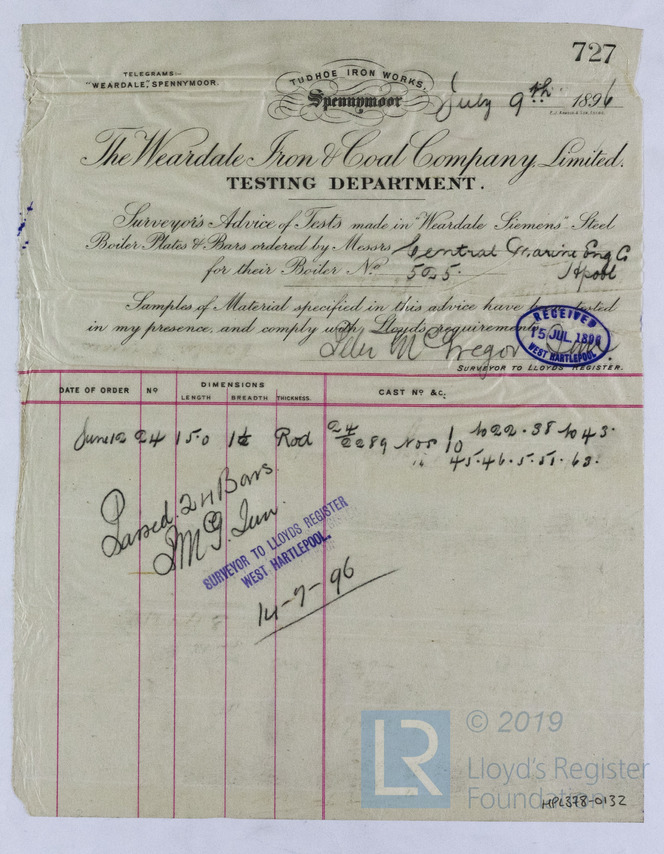 727
TELEGRAMS:—
"WEARDALE", SPENNYMOOR.
TUDHOE IRON WORKS,
Spennymoor
July 9th 1896
The Weardale Iron & Coal Company, Limited.
TESTING DEPARTMENT.
Surveyor's Advice of Tests made in "Weardale Siemens" Steel
Boiler Plates & Bars ordered by Messrs Central Marine Eng Co
for their Boiler No. 525. Hpool
Samples of Material specified in this advice have been tested
in my presence, and comply with Lloyds requirements
Peter McGregor Jun.
SURVEYOR TO LLOYDS REGISTER.
RECEIVED
15 JUL 1896
WEST HARTLEPOOL
DATE OF ORDER No DIMENSIONS CAST No &c.
LENGTH BREADTH THICKNESS.
June 12 24 15.0 Rod 24 2289 Nos 10 to 22. 38 to 43.
45. 46. 5. 51. 63.
Passed. 24 Bars.
McG. Jun.
SURVEYOR TO LLOYDS REGISTER
WEST HARTLEPOOL.
14-7-96
LR
© 2019
Lloyd's Register
Foundation
HPL378-0132